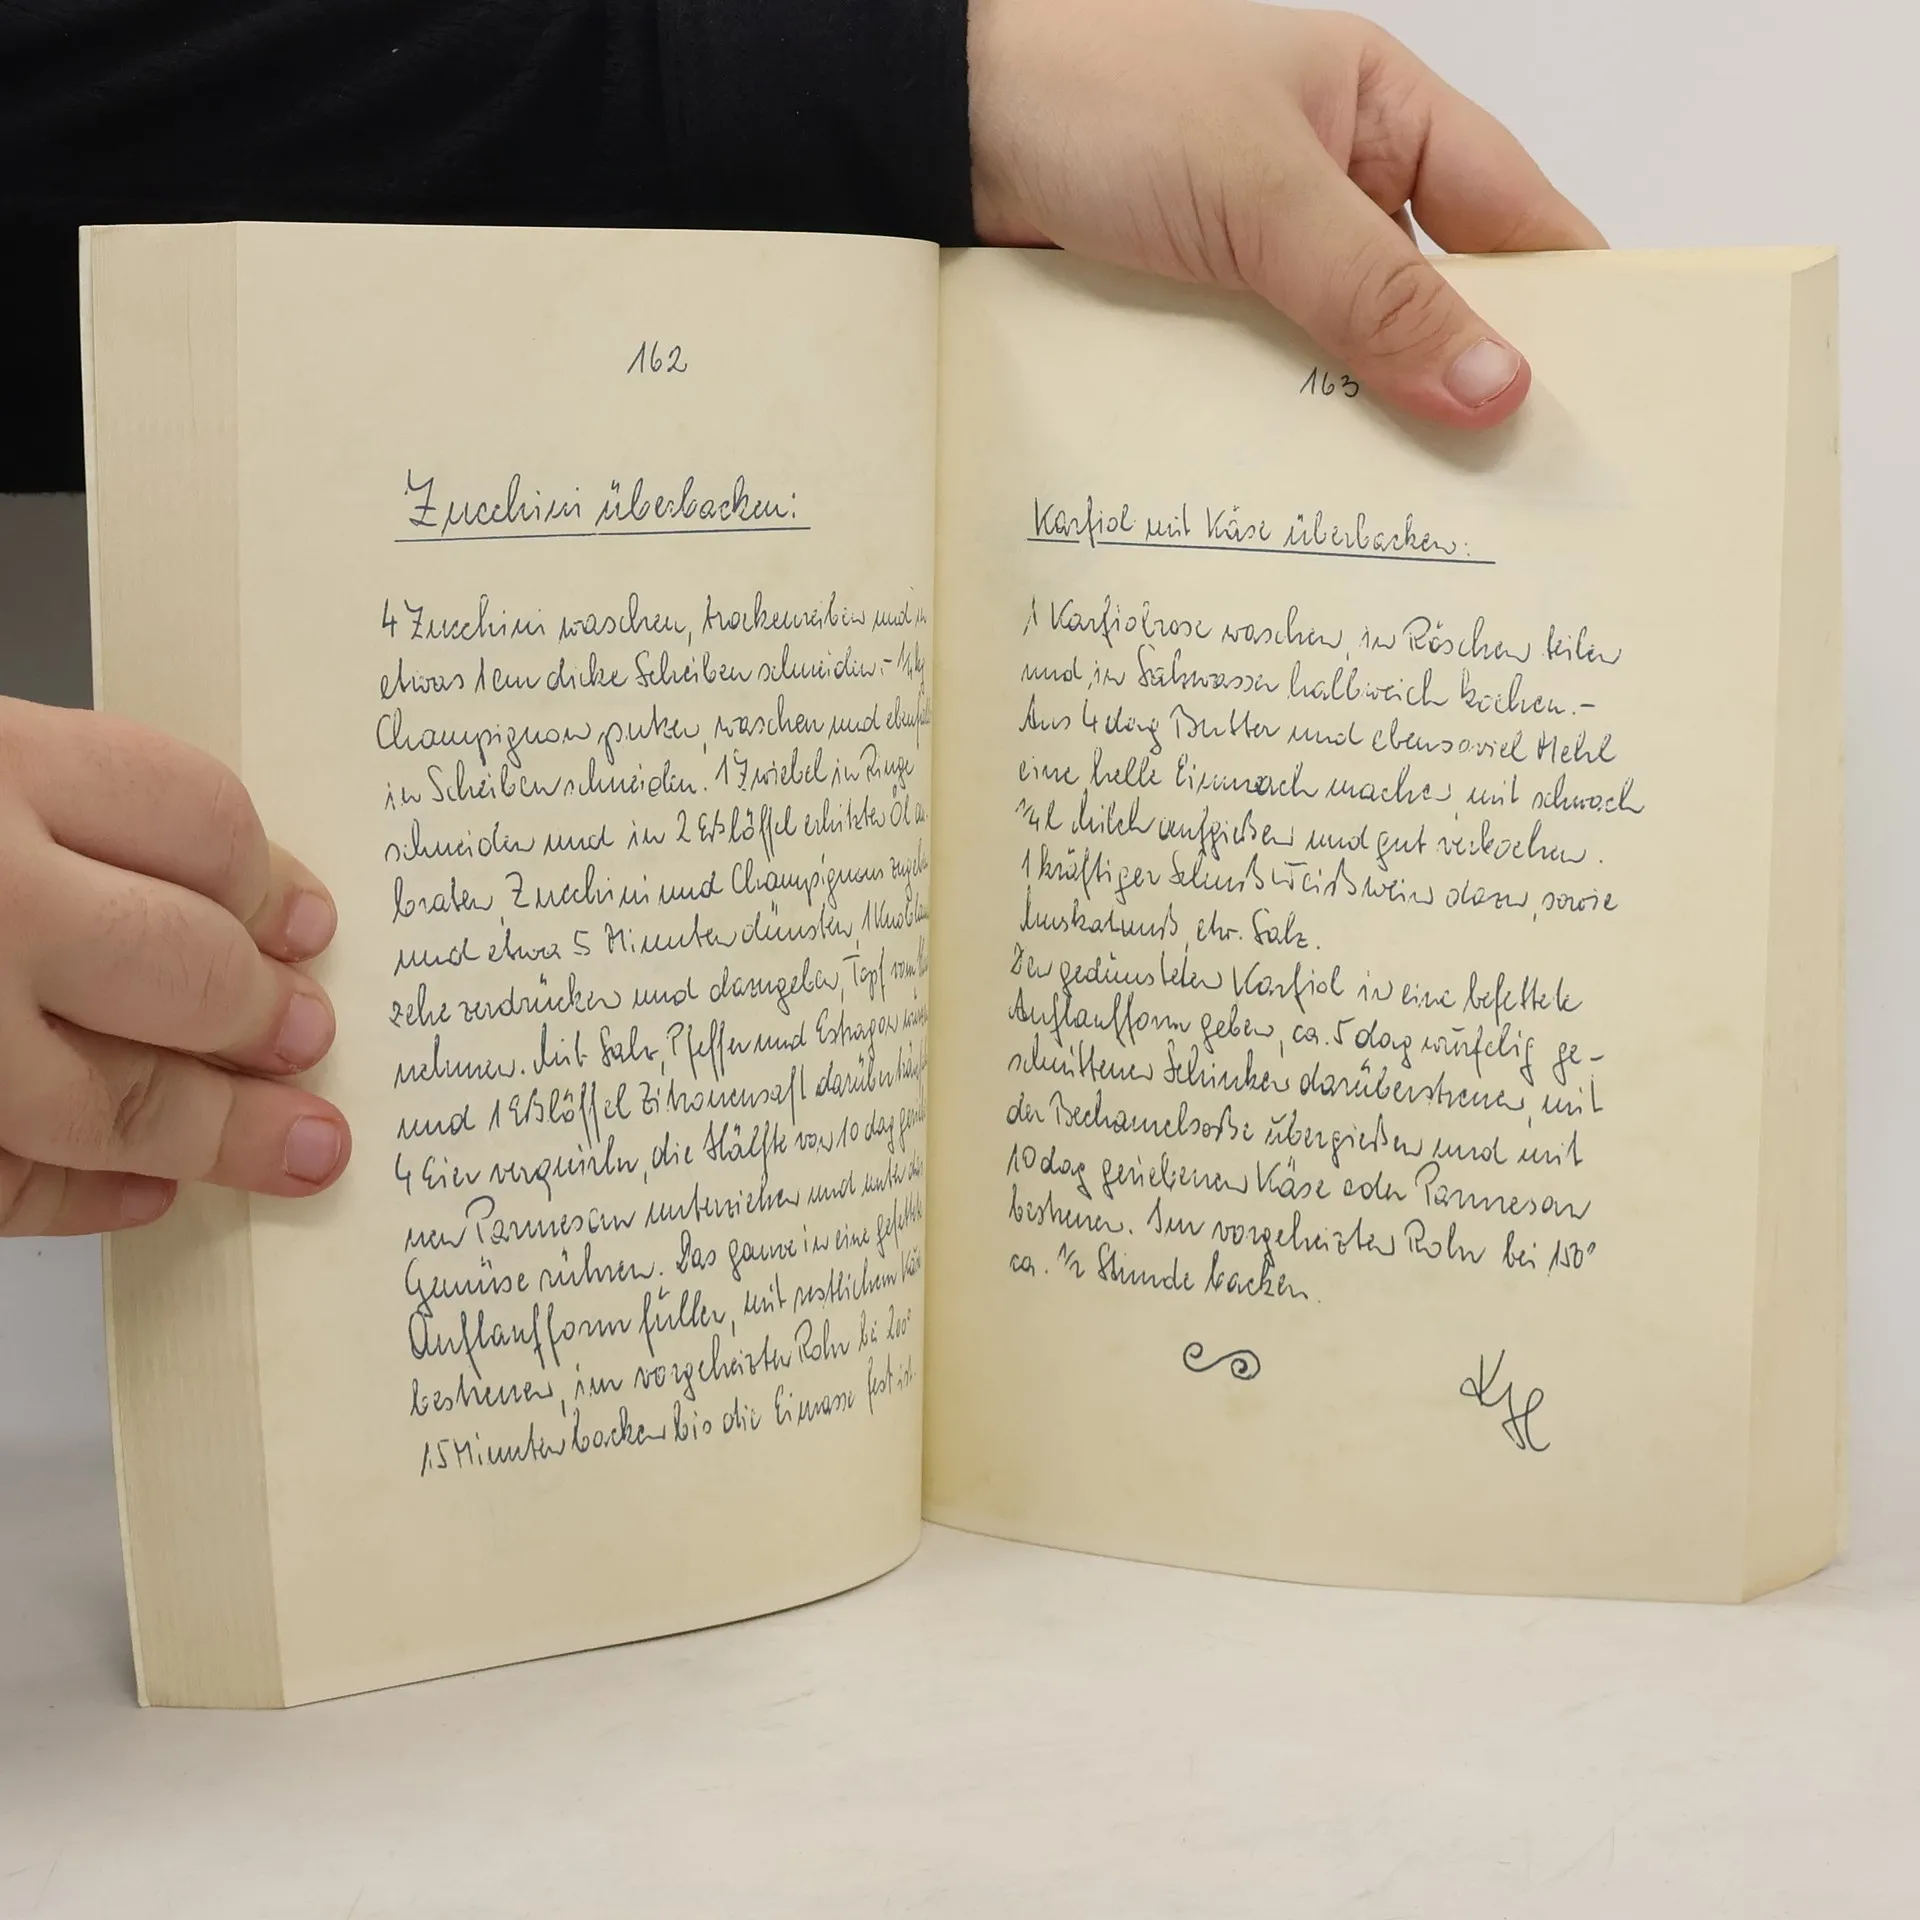 162
Zucchini überbacken:
4 Zucchini waschen, trockenreiben und in
etwas 1 cm dicke Scheiben schneiden.- 1/4 kg
Champignon putzen, waschen und
in Scheiben schneiden. 1 Zwiebel in Ringe
schneiden und in 2 Eßlöffel erhitzten Öl
braten, Zucchini und Champignons
und etwa 5 Minuten dünsten, 1
zehe zerdrücken und dazugeben, Topf vom
nehmen. Mit Salz, Pfeffer und Estragon
und 1 Eßlöffel Zitronensaft
4 Eier verquirln, die Hälfte von 10 dag
nen Parmesan unterziehen und unter das
Gemüse rühren. Das ganze in eine
Auflaufform füllen, mit restlichem
bestreuen, im vorgeheizten Rohr bei 200°
15 Minuten backen bis die Eimasse fest ist.
163
Karfiol mit Käse überbacken:
1 Karfiolrose waschen, in Röschen teilen
und in Salzwasser halbweich kochen.-
Aus 4 dag Butter und ebensoviel Mehl
eine helle Einmach machen, mit schwach
1/4 l Milch aufgießen und gut verkochen.
1 kräftiger Schuß Weißwein dazu, sowie
Muskatnuß, etw. Salz.
Den gedünsteten Karfiol in eine befettete
Auflaufform geben, ca. 5 dag würfelig ge-
schnittenen Schinken darüberstreuen, mit
der Bechamelsoße übergießen und mit
10 dag geriebenen Käse oder Parmesan
bestreuen. Im vorgeheizten Rohr bei 150°
ca. 1/2 Stunde backen.